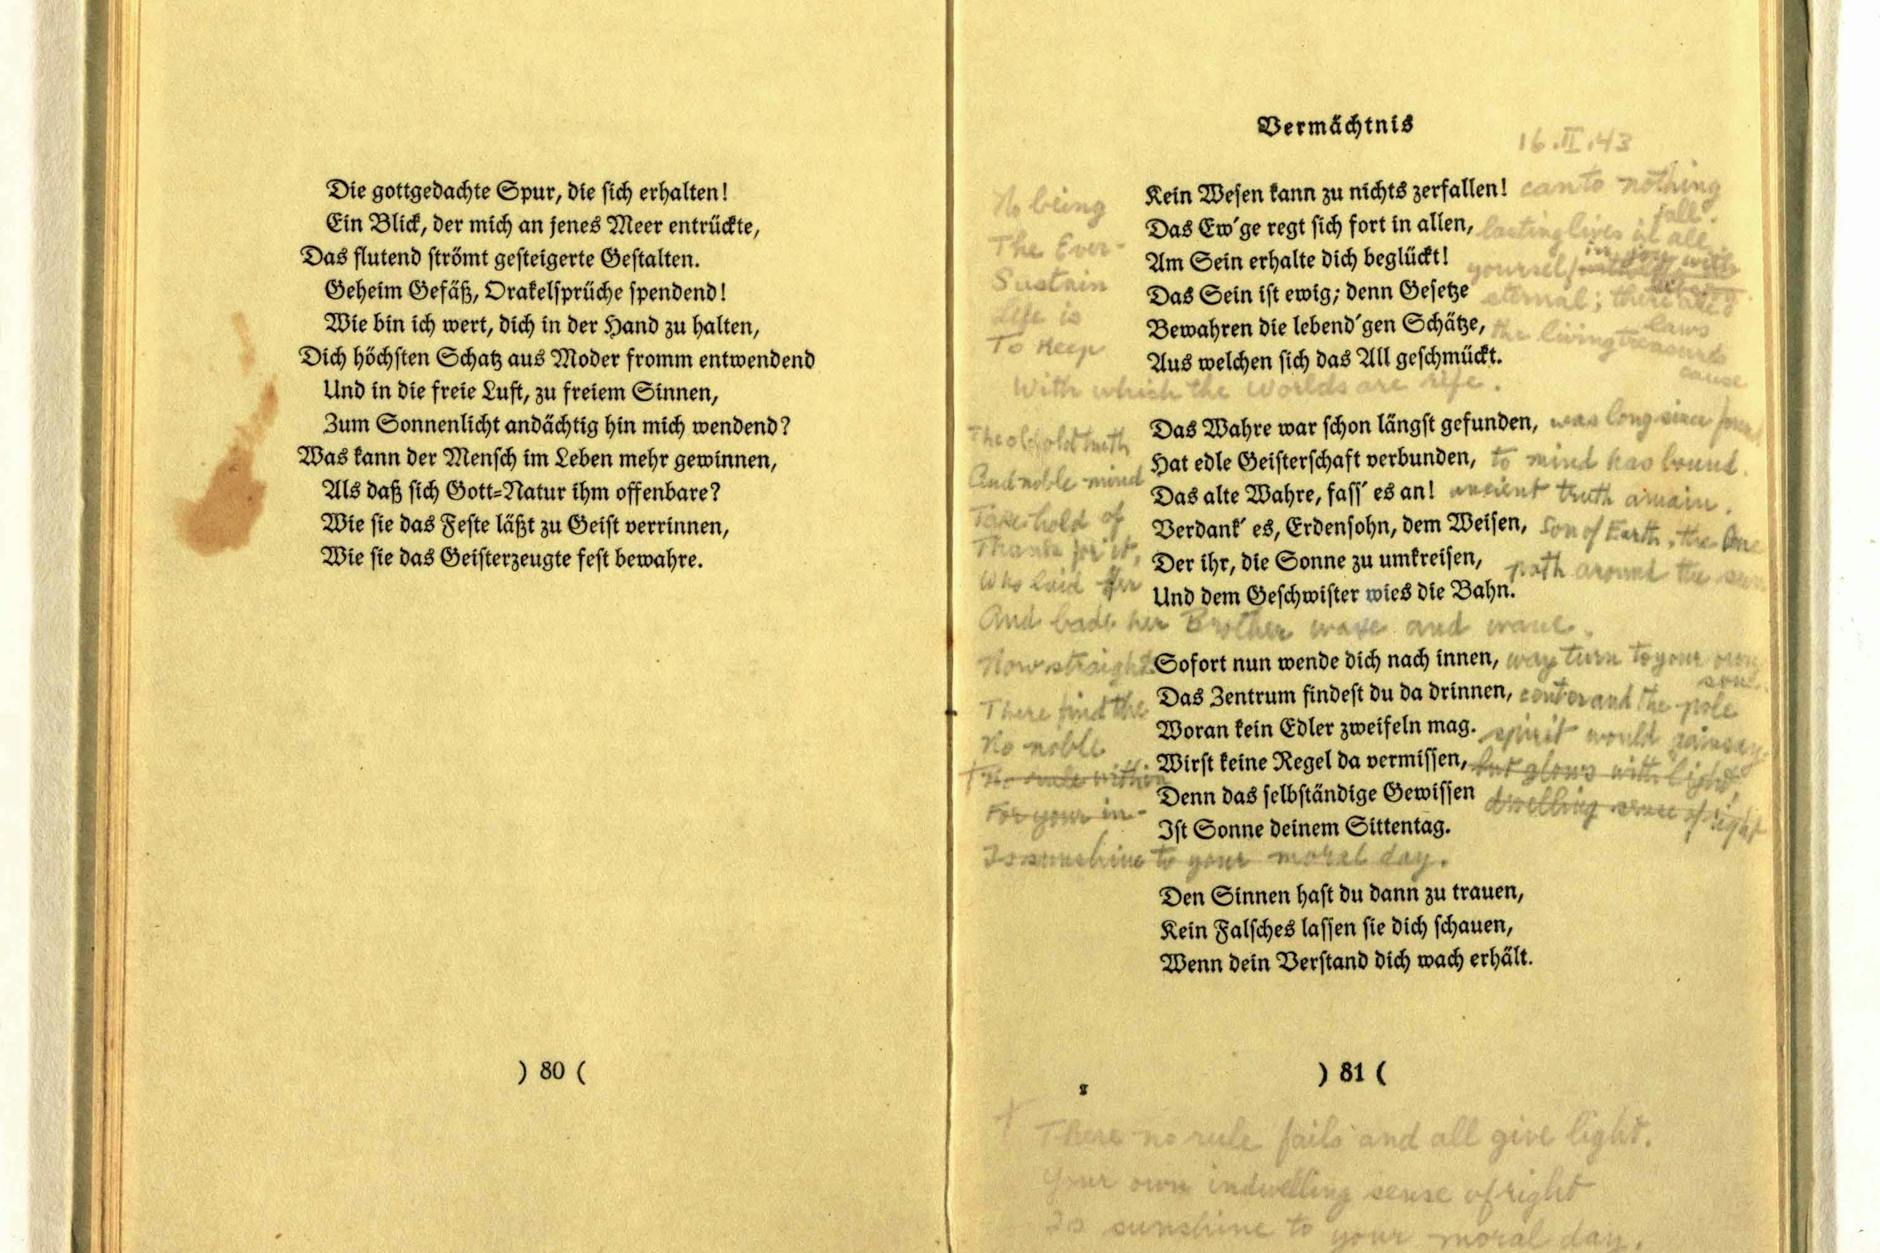 Die gottgedachte Spur, die sich erhalten!
Ein Blick, der mich an jenes Meer entrückte,
Das flutend strömt gesteigerte Gestalten.
Geheim Gefäß, Orakelsprüche spendend!
Wie bin ich wert, dich in der Hand zu halten,
Dich höchsten Schatz aus Moder fromm entwendend
Und in die freie Luft, zu freiem Sinnen,
Zum Sonnenlicht andächtig hin mich wendend?
Was kann der Mensch im Leben mehr gewinnen,
Als daß sich Gott-Natur ihm offenbare?
Wie sie das Feste läßt zu Geist verrinnen,
Wie sie das Geisterzeugte fest bewahre.
) 80 (
Vermächtnis
16.II.43
No being Kein Wesen kann zu nichts zerfallen! can to nothing
fall.
The Ever- Das Ew'ge regt sich fort in allen, lasting lives in all,
Sustain Am Sein erhalte dich beglückt! yourself in joy with
Life is Das Sein ist ewig; denn Gesetze eternal; there are
laws
To keep Bewahren die lebend'gen Schätze, the living treasures
cause
Aus welchen sich das All geschmückt.
With which the worlds are rife.
The old, old truth Das Wahre war schon längst gefunden, was long since found
And noble mind Hat edle Geisterschaft verbunden, to mind has bound.
Take hold of Das alte Wahre, fass' es an! ancient truth amain.
Thanks for it, Verdank' es, Erdensohn, dem Weisen, Son of Earth, the One
Who laid her Der ihr, die Sonne zu umkreisen, path around the sun
Und dem Geschwister wies die Bahn.
And bade her Brother wax and wane.
Now straight Sofort nun wende dich nach innen, way turn to your own
soul.
There find the Das Zentrum findest du da drinnen, center and the pole
No noble Woran kein Edler zweifeln mag. spirit would gainsay.
† No rule within Wirst keine Regel da vermissen, but glows with light,
For your in- Denn das selbständige Gewissen dwelling sense of right
Ist Sonne deinem Sittentag.
Is sunshine to your moral day.
Den Sinnen hast du dann zu trauen,
Kein Falsches lassen sie dich schauen,
Wenn dein Verstand dich wach erhält.
) 81 (
† There no rule fails and all give light.
Your own indwelling sense of right
Is sunshine to your moral day.